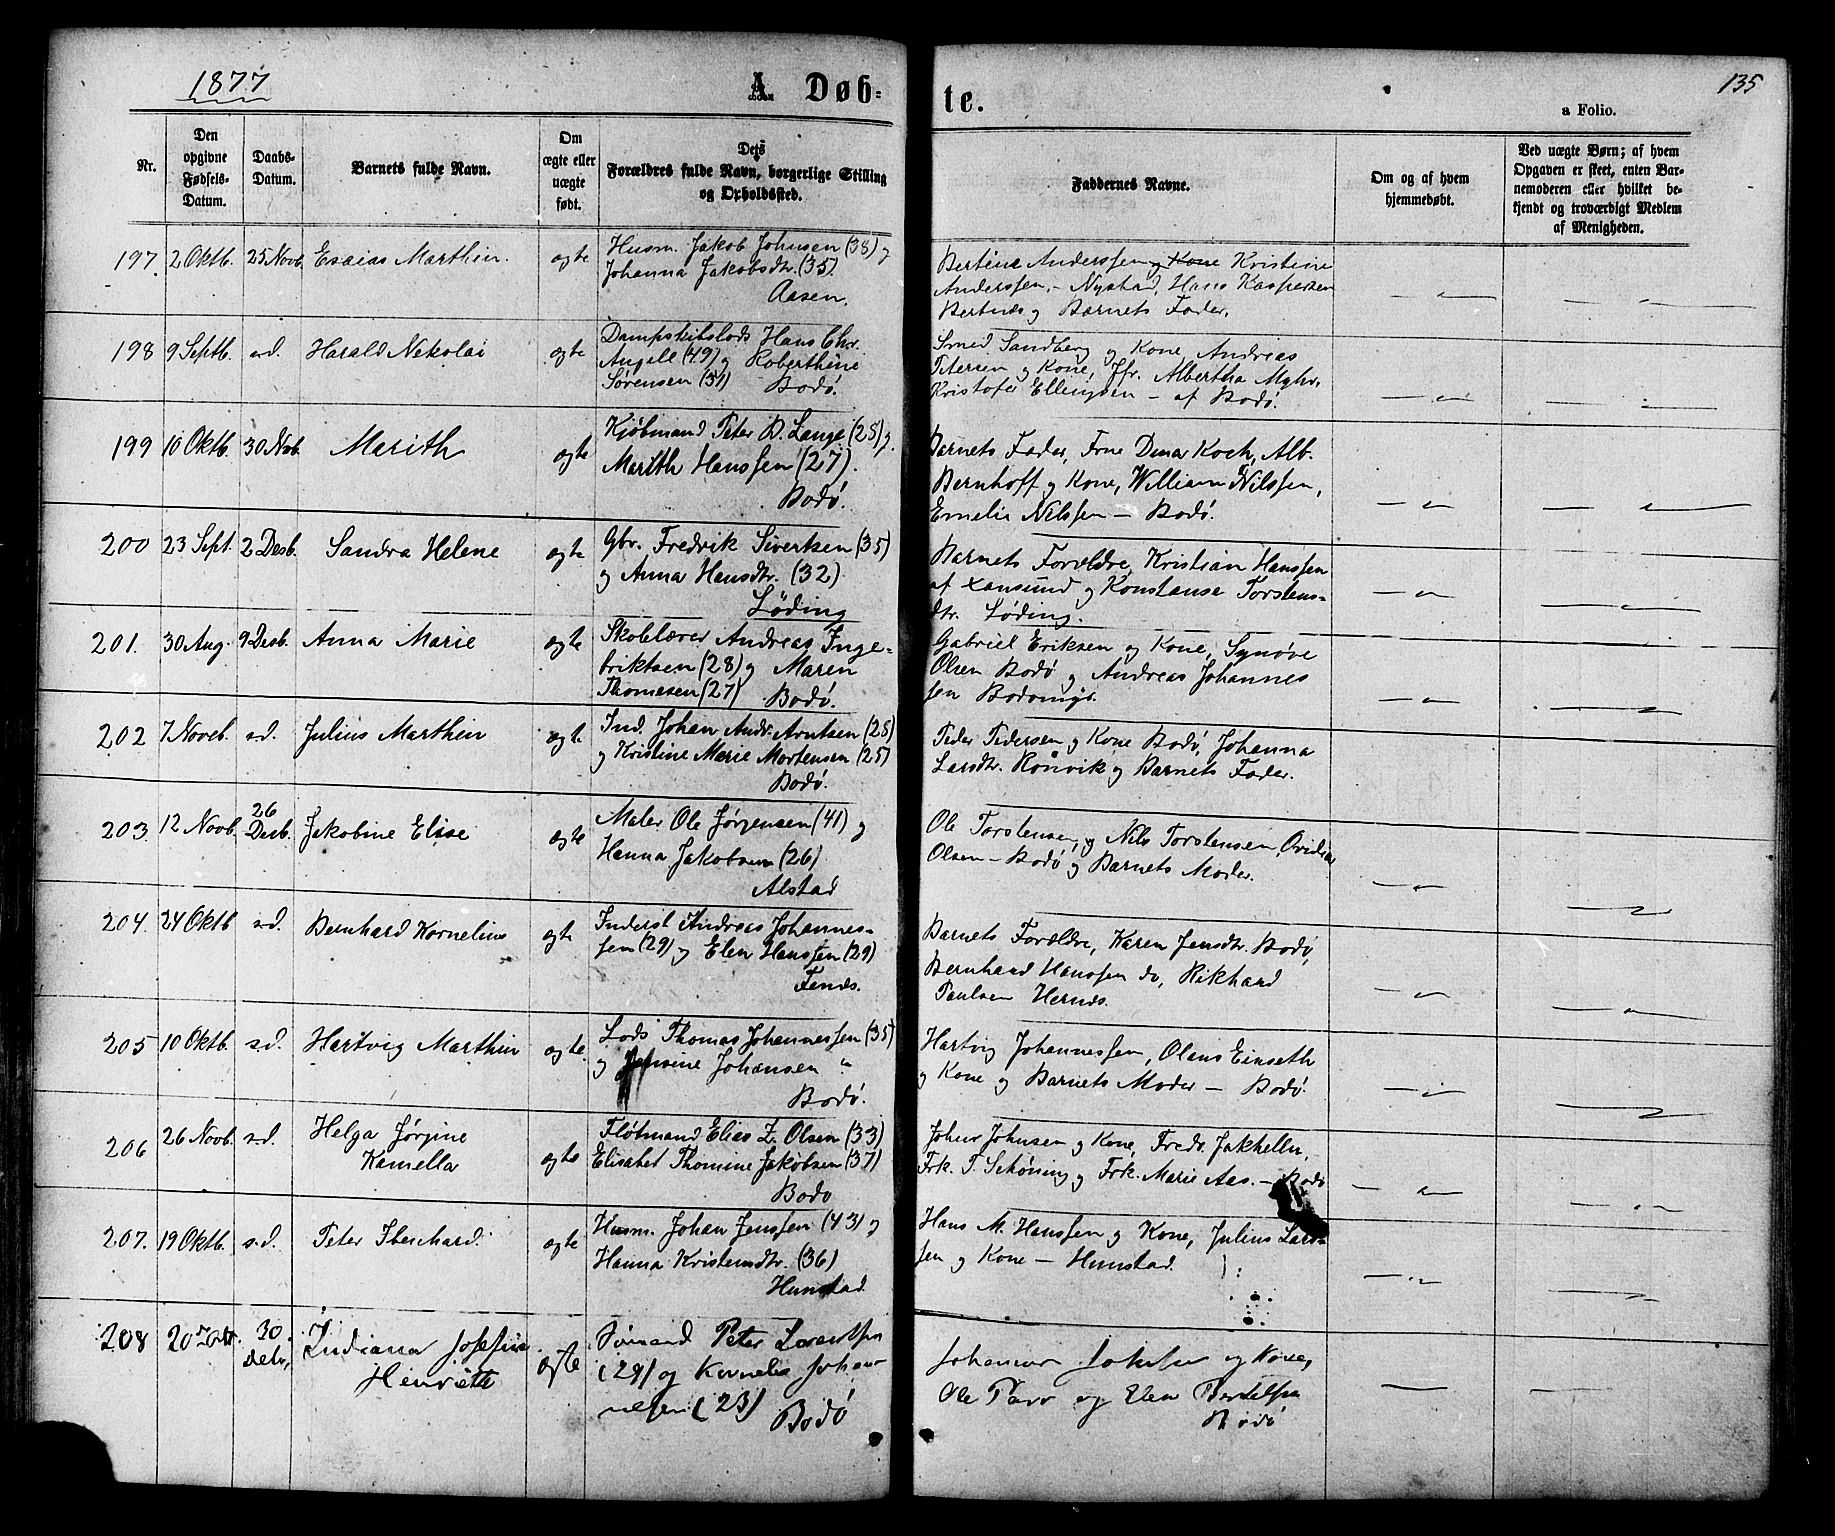 1877
A Døb-
te.
135
a Folio.
Nr.
Den opgivne Fødsels-Datum.
Daabs-Datum.
Barnets fulde Navn.
Om ægte eller uægte født.
Dets Forældres fulde Navn, borgerlige Stilling og Opholdssted.
Faddernes Navne.
Om og af hvem hjemmedøbt.
Ved uægte Børn; af hvem Opgaven er skeet, enten Barnemoderen eller hvilket bekjendt og troværdigt Medlem af Menigheden.
197. 2 Oktb. 25 Novb. Esaias Marthin. ægte
Husm. Jakob Johnsen (38) og
Johanna Jakobsdtr. (35)
Aasen.
Anderssen og Kone Kristine
Anderssen, - Nystad, Hans Kaspersen
Bertnæs og Barnets Fader.
198 9 Septb. s.d. Harald Nekolai ægte
Dampskibslods Hans Chr.
Angell (49) og Roberthine
Sørensen (31) Bodø.
Smed Sandberg og Kone, Andreas
Petersen og Kone, Jfr. Albertha Myhr,
Kristofer Ellingsen - af Bodø.
199 10 Oktb. 30 Nvb. Marith ægte
Kjøbmand Peter D. Lange (25) og
Marith Hanssen (27).
Bodø.
Barnets Fader, Frue Dina Koch, Alb.
Bernhoff og Kone, William Nilssen,
Emelie Nilssen - Bodø.
200 23 Sept. 2 Desb. Sandra Helene ægte
Gbr. Fredrik Sivertsen (35)
og Anna Hansdtr. (32)
Løding
Barnets Forældre, Kristian Hanssen
af Xansund og Konstanse Torstens-
dtr. Løding.
201. 30 Aug. 9 Desb. Anna Marie ægte
Skolelærer Andreas Inge-
briktsen (28) og Maren
Thomesen (27) Bodø.
Gabriel Eriksen og Kone, Synøve
Olsen Bodø og Andreas Johannes
sen
202 7 Noveb. s.d. Julius Marthin ægte
Ind. Johan Andr. Arntsen (25)
og Kristine Marie Mortensen (25)
Bodø.
Peder Pedersen og Kone Bodø, Johanna
Larsdtr. Rønvik og Barnets Fader.
203. 12 Novb. 26 Desb. Jakobine Elise ægte
Maler Ole Jørgensen (41) og
Hanna Jakobsen (26)
Alstad
Ole Torstensen, og Nils Torstensen,
Olsen - Bodø og Barnets Moder.
204. 24 Oktb s.d. Bernhard Kornelius ægte
Inderst Andreas Johannes-
sen (29) og Elen Hanssen (29)
Barnets Forældre, Karen Jensdtr. Bodø,
Bernhard Hanssen do, Rikhard
Paulsen Hernes.
205 10 Oktb. s.d. Hartvig Marthin ægte
Lods Thomas Johannessen (35)
og Johansen "
Bodø.
Hartvig Johannessen, Olaus Einseth
og Kone og Barnets Moder - Bodø.
206 26 Novb. s.d. Helga Jørgine
Kamella ægte
Fløtmand Elias Z. Olsen (33)
Elisabet Thomine Jakobsen (37)
Bodø
Johnsen og Kone, Fredr. Jakhelln,
Frk. T. Schøning og Frk. Marie Aas. - Bodø
207. 19 Oktb. s.d. Peter Iberhard. ægte
Husm. Johan Jenssen (43) og
Hanna Kristensdtr. (36)
Hunstad
Hans M. Hanssen og Kone, Julius Lars-
sen og Kone - Hunstad.
208 20 Oktb. 30 Debr, Indiana Josefine
Henriette ægte
Sømand Peter
(29) og Kornelia Johan
nesen (23) Bodø
og Kone,
Ole og Elen Bertelsen
Bodø